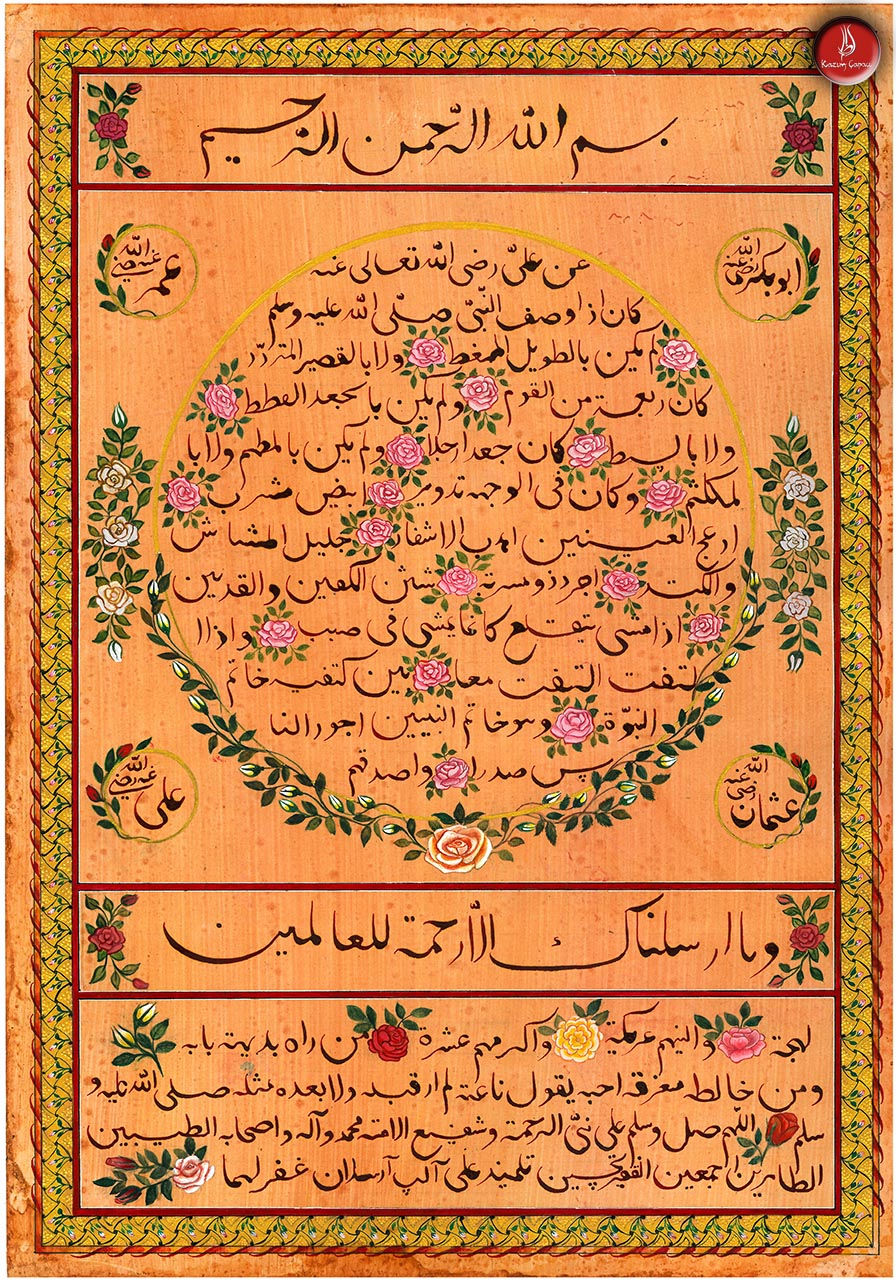 Kazım Çapacı
بسم الله الرّحمن الرّحيم
ابو بكر رضى الله عنه
عمر رضى الله عنه
عن علىّ رضى الله تعالى عنه
كان اذا وصف النّبىّ صلّى الله عليه وسلم
لم يكن بالطويل الممغط ولا بالقصير المتردّد
كان ربعة من القوم ولم يكن بالجعد القطط
ولا بالسبط كان جعدا رجلا ولم يكن بالمطهم ولا با
لمكلثم وكان فى الوجه تدوير ابيض مشرب
ادعج العينين اهدب الاشفار جليل المشاش
والكتد اجرد ذو مسربة شثن الكفين والقدمين
اذا مشى يتقلع كانما يمشى فى صبب واذا ا
لتفت التفت معا بين كتفيه خاتم
النبوّة وهو خاتم النبيين اجود النا
س صدرا واصدقهم
عثمان رضى الله عنه
على رضى الله عنه
وما ارسلناك الّا رحمة للعالمين
لهجة والينهم عريكة واكرمهم عشرة من راه بديهة هابه
ومن خالطه معرفة احبه يقول ناعته لم ار قبله ولا بعده مثله صلى الله عليه و
سلم اللهم صل وسلم على نبىّ الرحمة وشفيع الامة محمد وآله واصحابه الطيبين
الطاهرين اجمعين تلميذ على آلپ آرسلان غفر لهما